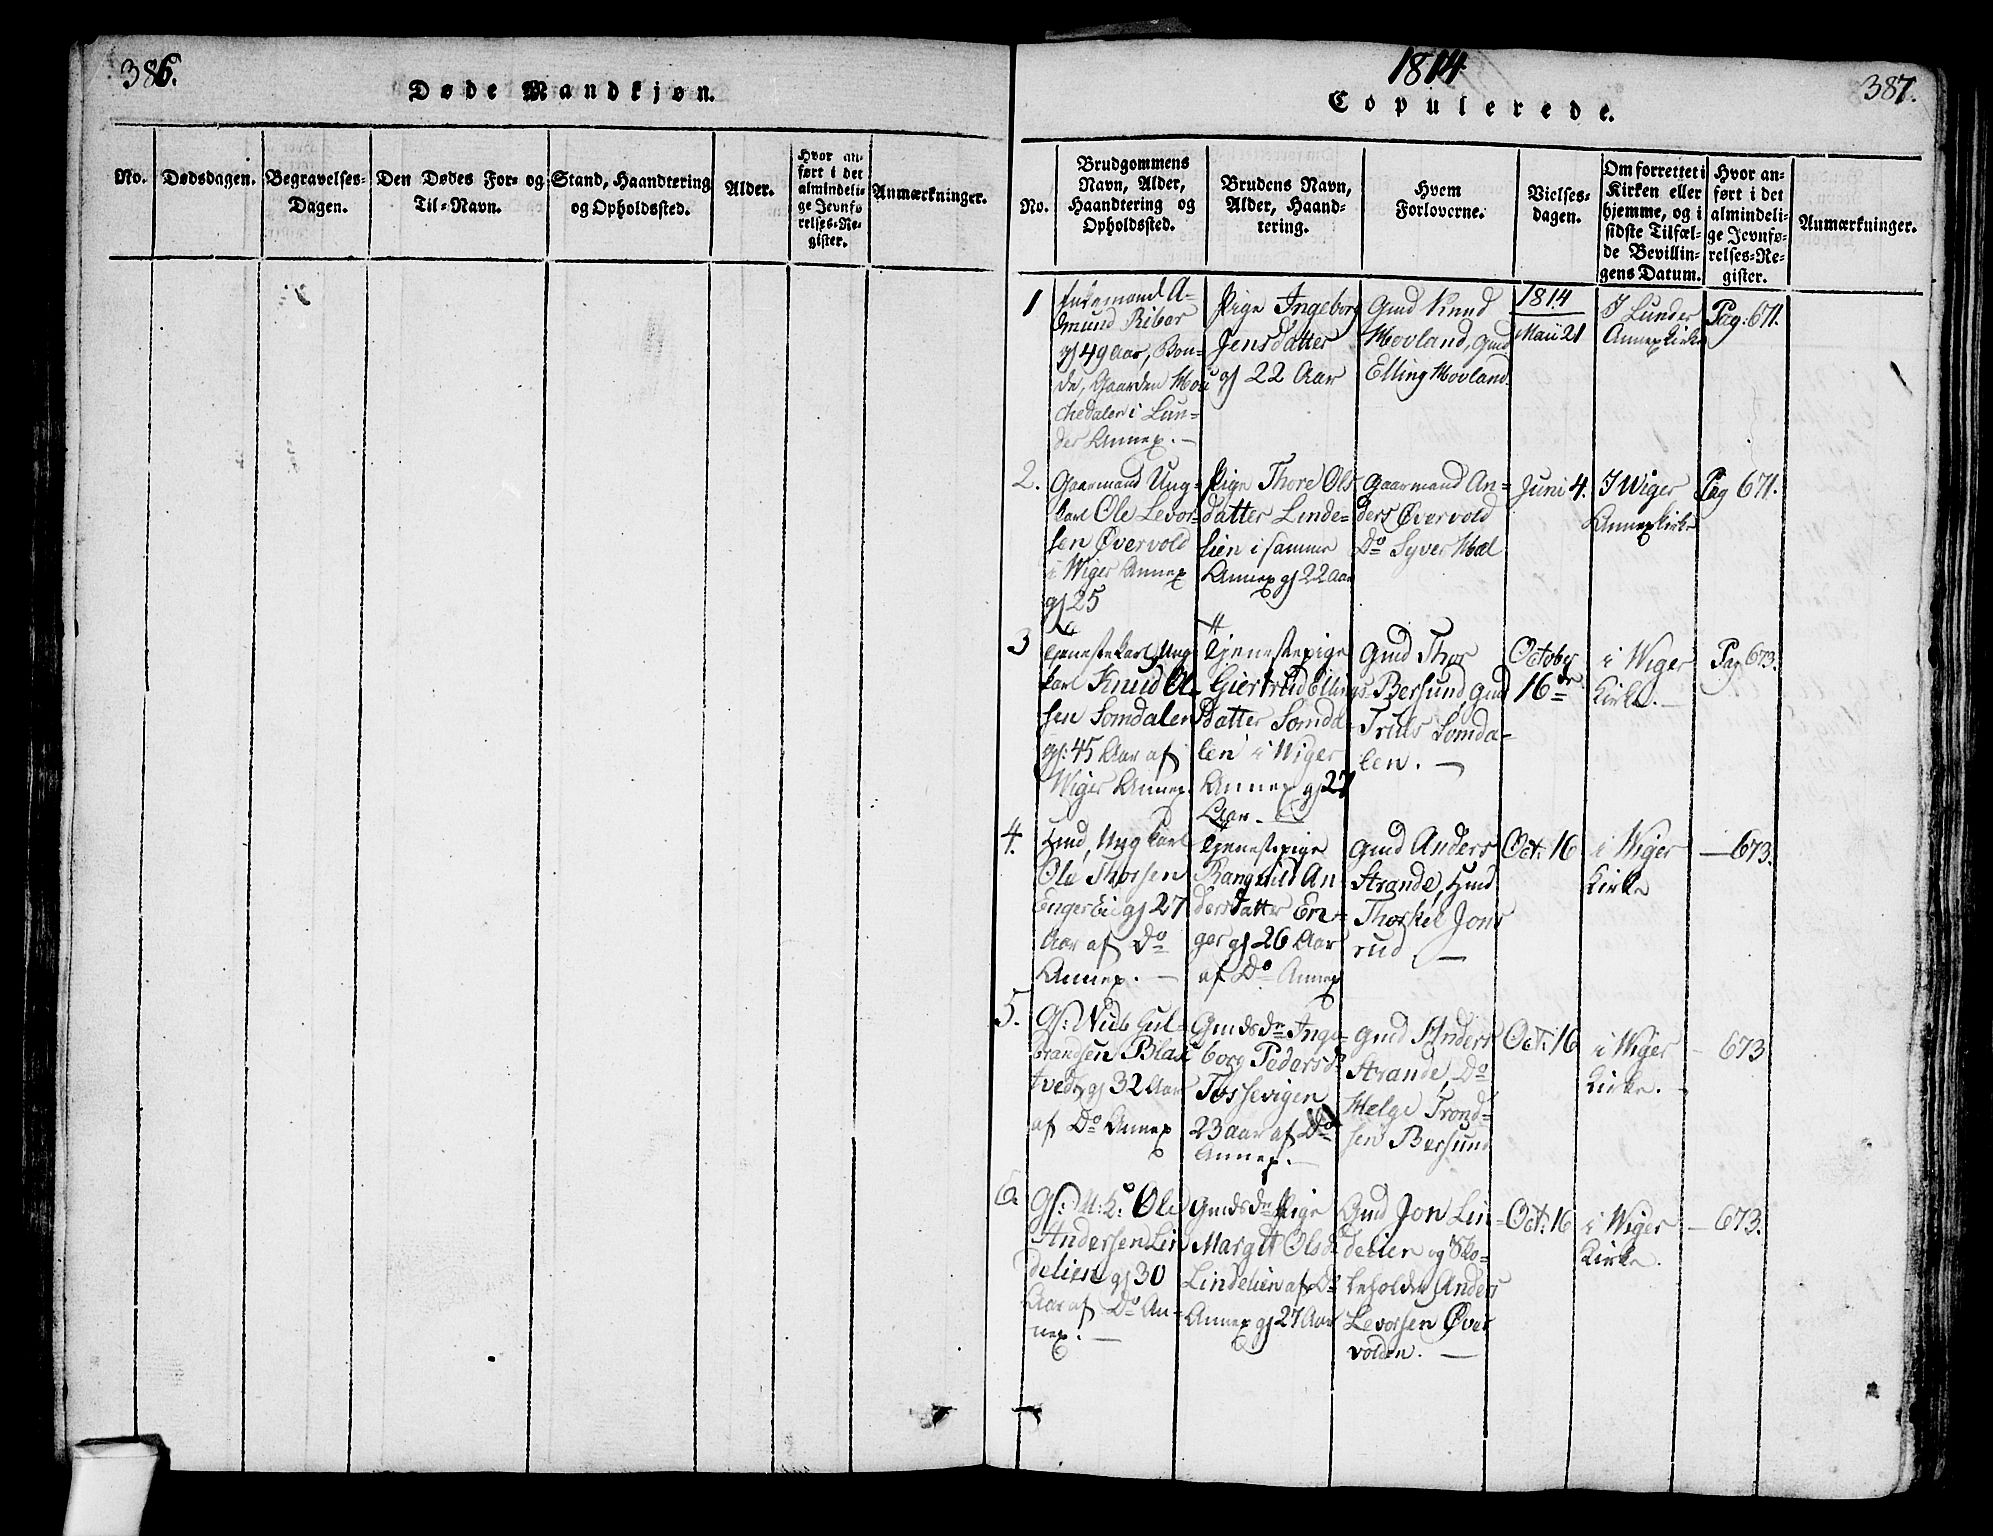 386.
Døde Mandkjøn.
No.
Dødsdagen.
Begravelses-
Dagen.
Den Dødes For- og
Til-Navn.
Stand, Haandtering
og Opholdssted.
Alder.
Hvor an-
ført i det
almindeli-
ge Jevnfø-
relses-Re-
gister.
Anmærkninger.
1814
387.
Copulerede.
No.
Brudgommens
Navn, Alder,
Haandtering og
Opholdssted.
Brudens Navn,
Alder, Haand-
tering.
Hvem
Forloverne.
Vielses-
dagen.
Om forrettet i
Kirken eller
hjemme, og i
sidste Tilfæl-
de Bevillin-
gens Datum.
Hvor an-
ført i det
almindeli-
ge Jevnfø-
relses-Re-
gister.
Anmærkninger.
1
Enkemand A-
mund Ribor
gs 49 Aar, Bon-
de, Gaarden
i Lun-
der Annex.
Pige Ingeborg
Jensdatter
gs 22 Aar
Gmd Knud
Hovland, Gmd
Elling Hovland.
1814
Maii 21
I Lunder
Annexkirke
Pag: 671.
2.
Gaarmand Ung-
karl Ole Levor-
sen Øvervold
i Wiger Annex
gs 25
Pige Thore Ols
datter Linde-
lien i samme
Annex gs 22 Aar
Gaarmand An-
ders Øvervold
Do Syver Hæl
Juni 4.
I Wiger
Annexkirke
Pag 671.
3
Tjenestekarl, Ung
karl Knud Ol-
sen Somdalen
gs: 45 Aar af
Wiger Annex.
Tjenestepige
Giertrud Ellings
datter Somda-
len i Wiger
Annex gs 27
Aar.
Gmd Thor
Bersund, Gmd
Truls Somda-
len.
October
16de
i Wiger
Kirke.
Pag 673.
4.
Hmd, Ungkarl
Ole Thorsen
Engerlie gs 27
Aar af Do
Annex.
Tjenestepige
Rangnild An
dersdatter En-
ger gs 26 Aar
af Do Annex
Gmd Anders
Strande, Hmd
Thorkel Jons
rud
Oct: 16
i Wiger
Kirke
— 673.
5.
Gs: Niels Gul-
brandsen Blak
tvedt gs 32 Aar
af Do Annex
Gmds dr Inge-
borg Pedersd
Tossevigen
23 aar af Do
Annex.
Gmd Anders
Strande, Do
Helge Trond-
sen Bersund
Oct: 16
i Wiger
Kirke.
— 673
6.
Gs: U: K: Ole
Andersen Lin
delien gs 30
Aar af Do An-
nex.
Gmds dr Pige
Margit Olsd.
Lindelien af Do
Annex gs 27 Aar
Gmd Jon Lin-
delien og Sko-
leholder Anders
Levorsen Øver
volden.
Oct: 16
i Wiger
Kirke.
— 673.